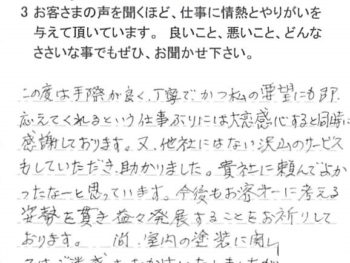 3 お客さまの声を聞くほど、仕事に情熱とやりがいを
与えて頂いています。 良いこと、悪いこと、どんな
ささいな事でもぜひ、お聞かせ下さい。
この度は手際が良く、丁寧で、かつ私の要望にも即
応えてくれるという仕事ぶりには大変感心すると同時に
感謝しております。又、他社にはない沢山のサービス
もしていただき、助かりました。貴社に頼んでよか
ったなーと思っています。今後もお客オーに考える
姿勢を貫き益々発展することをお祈りして
おります。 尚、室内の塗装に関し